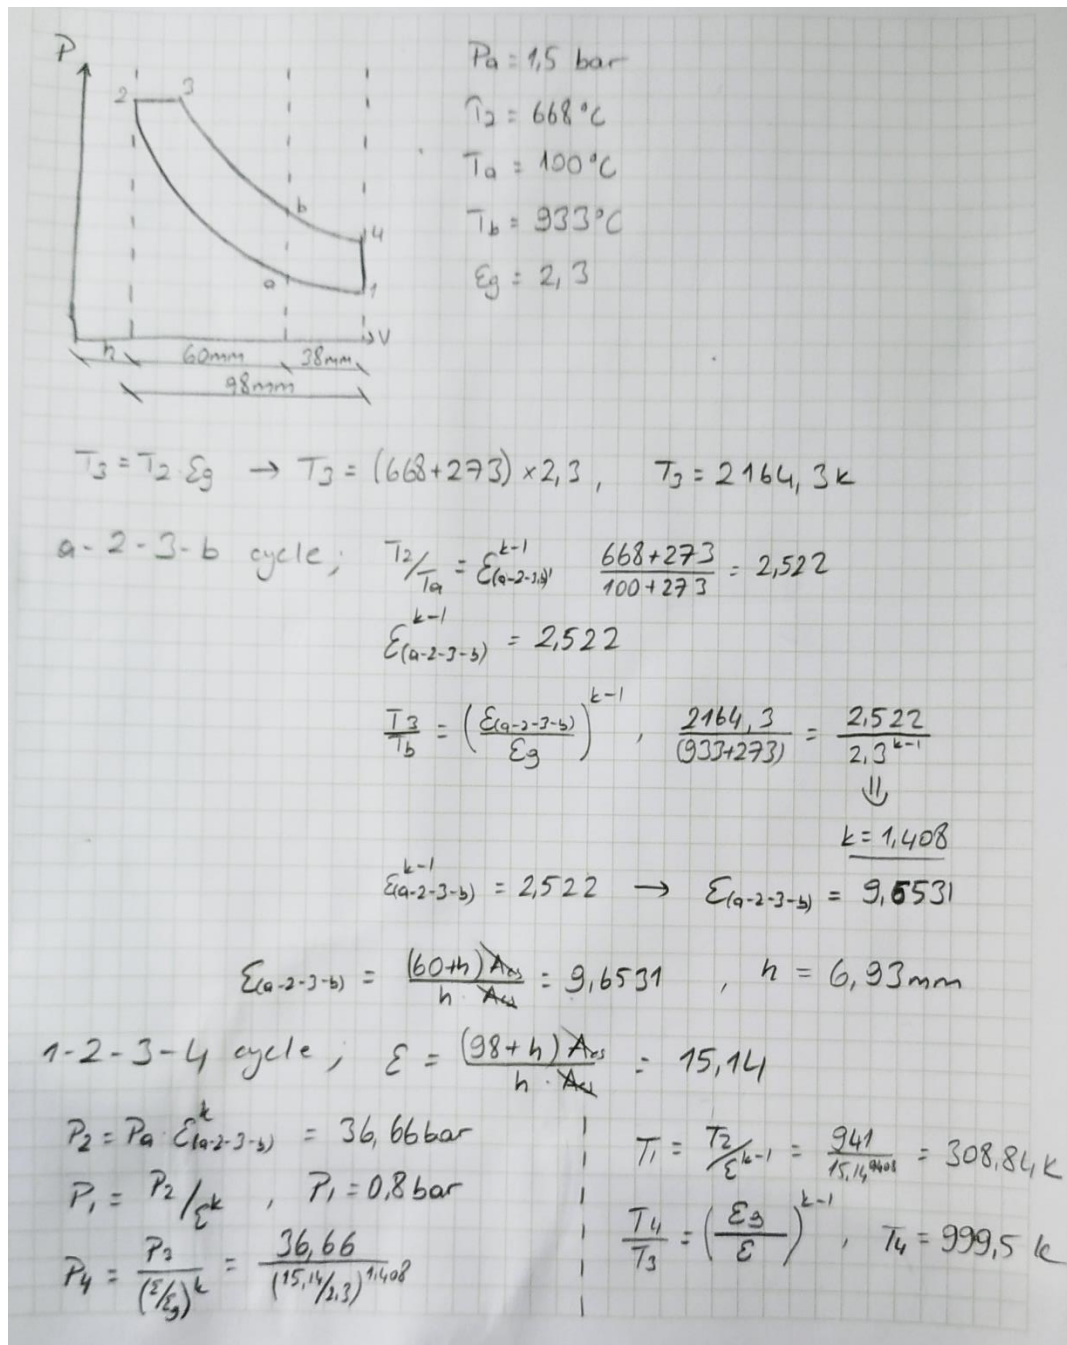 P
2 3
b
4
a
1
V
h 60mm 38mm
98mm
Pa = 1,5 bar
T2 = 668°C
Ta = 100°C
Tb = 933°C
Eg = 2,3
T3 = T2·Eg → T3 = (668+273) × 2,3, T3 = 2164,3k
a-2-3-b cycle; T2/Ta = ε(a-2-3-b)^k-1, 668+273/100+273 = 2,522
ε(a-2-3-b)^k-1 = 2,522
T3/Tb = (ε(a-2-3-b)/εg)^k-1, 2164,3/(933+273) = 2,522/2,3^k-1
⇓
k = 1,408
ε(a-2-3-b)^k-1 = 2,522 → ε(a-2-3-b) = 9,6531
ε(a-2-3-b) = (60+h)/h = 9,6531, h = 6,93mm
1-2-3-4 cycle; ε = (98+h)/h = 15,14
P2 = Pa·ε(a-2-3-b)^k = 36,66 bar
P1 = P2/ε^k, P1 = 0,8 bar
P4 = P3/(ε/εg)^k = 36,66/(15,14/2,3)^1,408
T1 = T2/ε^k-1 = 941/15,14^0,408 = 308,84k
T4/T3 = (εg/ε)^k-1, T4 = 999,5 k